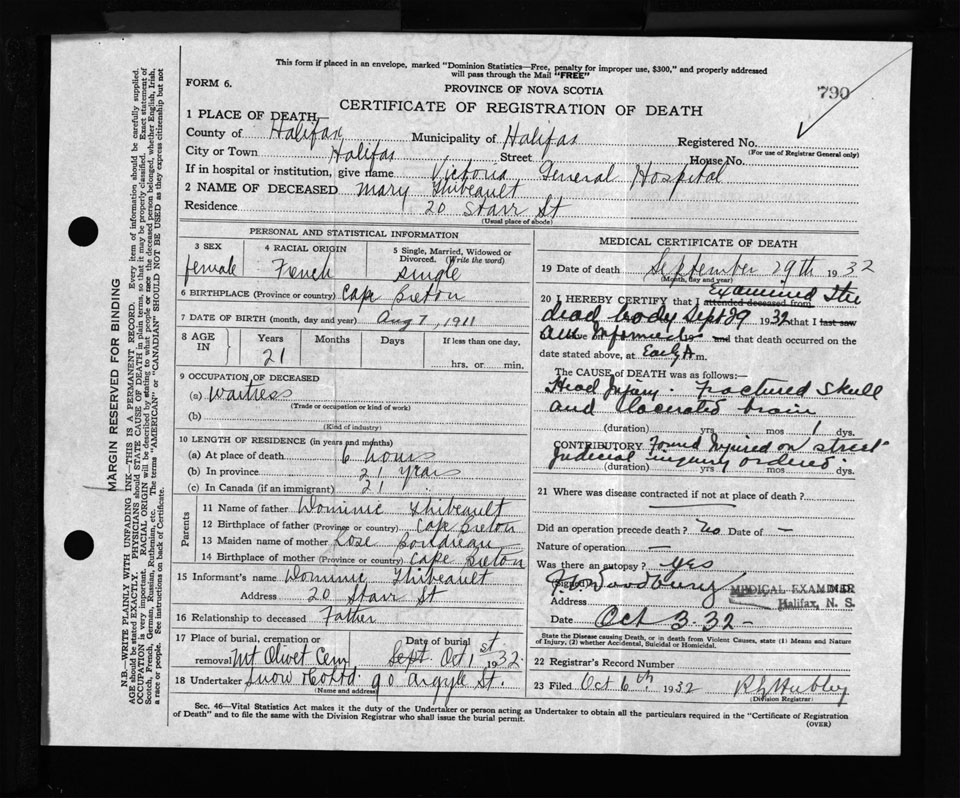 This form if placed in an envelope, marked "Dominion Statistics—Free, penalty for improper use, $300," and properly addressed
will pass through the Mail "FREE"
FORM 6.
PROVINCE OF NOVA SCOTIA
790
CERTIFICATE OF REGISTRATION OF DEATH
1 PLACE OF DEATH—
County of Halifax Municipality of Halifax Registered No.
(For use of Registrar General only)
City or Town Halifax Street House No.
If in hospital or institution, give name Victoria General Hospital
2 NAME OF DECEASED Mary Thibeault
Residence 20 Starr St
(Usual place of abode)
PERSONAL AND STATISTICAL INFORMATION
3 SEX 4 RACIAL ORIGIN 5 Single, Married, Widowed or
Divorced. (Write the word)
female French single
6 BIRTHPLACE (Province or country) Cape Breton
7 DATE OF BIRTH (month, day and year) Aug 7, 1911
8 AGE IN Years Months Days If less than one day,
21 hrs. or min.
9 OCCUPATION OF DECEASED
(a) Waitress
(Trade or occupation or kind of work)
(b)
(Kind of industry)
10 LENGTH OF RESIDENCE (in years and months)
(a) At place of death 6 hours
(b) In province 21 years
(c) In Canada (if an immigrant) 21
Parents
11 Name of father Dominic Thibeault
12 Birthplace of father (Province or country) Cape Breton
13 Maiden name of mother Rose Boudreau
14 Birthplace of mother (Province or country) Cape Breton
15 Informant's name Dominic Thibeault
Address 20 Starr St
16 Relationship to deceased Father
17 Place of burial, cremation or Date of burial
removal Mt Olivet Cem Sept. Oct 1st 1932
18 Undertaker Snow & Co Ltd. 90 Argyle St.
(Name and address)
MEDICAL CERTIFICATE OF DEATH
19 Date of death September 29th 1932
(Month, day and year)
20 I HEREBY CERTIFY that I attended deceased from Examined the
dead body Sept 29 1932 that I last saw
on and that death occurred on the
date stated above, at Early A m.
The CAUSE OF DEATH was as follows:—
Head Injury. Fractured skull
and lacerated brain
(duration) yrs. mos. 1 dys.
CONTRIBUTORY Found Injured on street
Judicial inquiry ordered
(duration) yrs. mos. dys.
21 Where was disease contracted if not at place of death?
Did an operation precede death? no Date of —
Nature of operation —
Was there an autopsy? yes
(Signed) Woodbury M.D.
MEDICAL EXAMINER
Halifax, N. S.
Address
Date Oct 3. 32 -
State the Disease causing Death, or in death from Violent Causes, state (1) Means and Nature
of Injury, (2) whether Accidental, Suicidal or Homicidal.
22 Registrar's Record Number
23 Filed Oct 6th, 1932 Hubley
(Division Registrar)
Sec. 46—Vital Statistics Act makes it the duty of the Undertaker or person acting as Undertaker to obtain all the particulars required in the "Certificate of Registration
of Death" and to file the same with the Division Registrar who shall issue the burial permit.
(OVER)
MARGIN RESERVED FOR BINDING
N.B.—WRITE PLAINLY WITH UNFADING INK—THIS IS A PERMANENT RECORD. Every item of information should be carefully supplied.
AGE should be stated EXACTLY. PHYSICIANS should STATE CAUSE OF DEATH in plain terms, so that it may be properly classified. Exact statement of
OCCUPATION is very important. RACIAL ORIGIN will be described by stating to what people or race the deceased person belonged, whether English, Irish,
Scotch, French, German, Russian, Ruthenian, etc. The terms "AMERICAN" or "CANADIAN" SHOULD NOT BE USED as they express citizenship but not
a race or people. See instructions on back of Certificate.